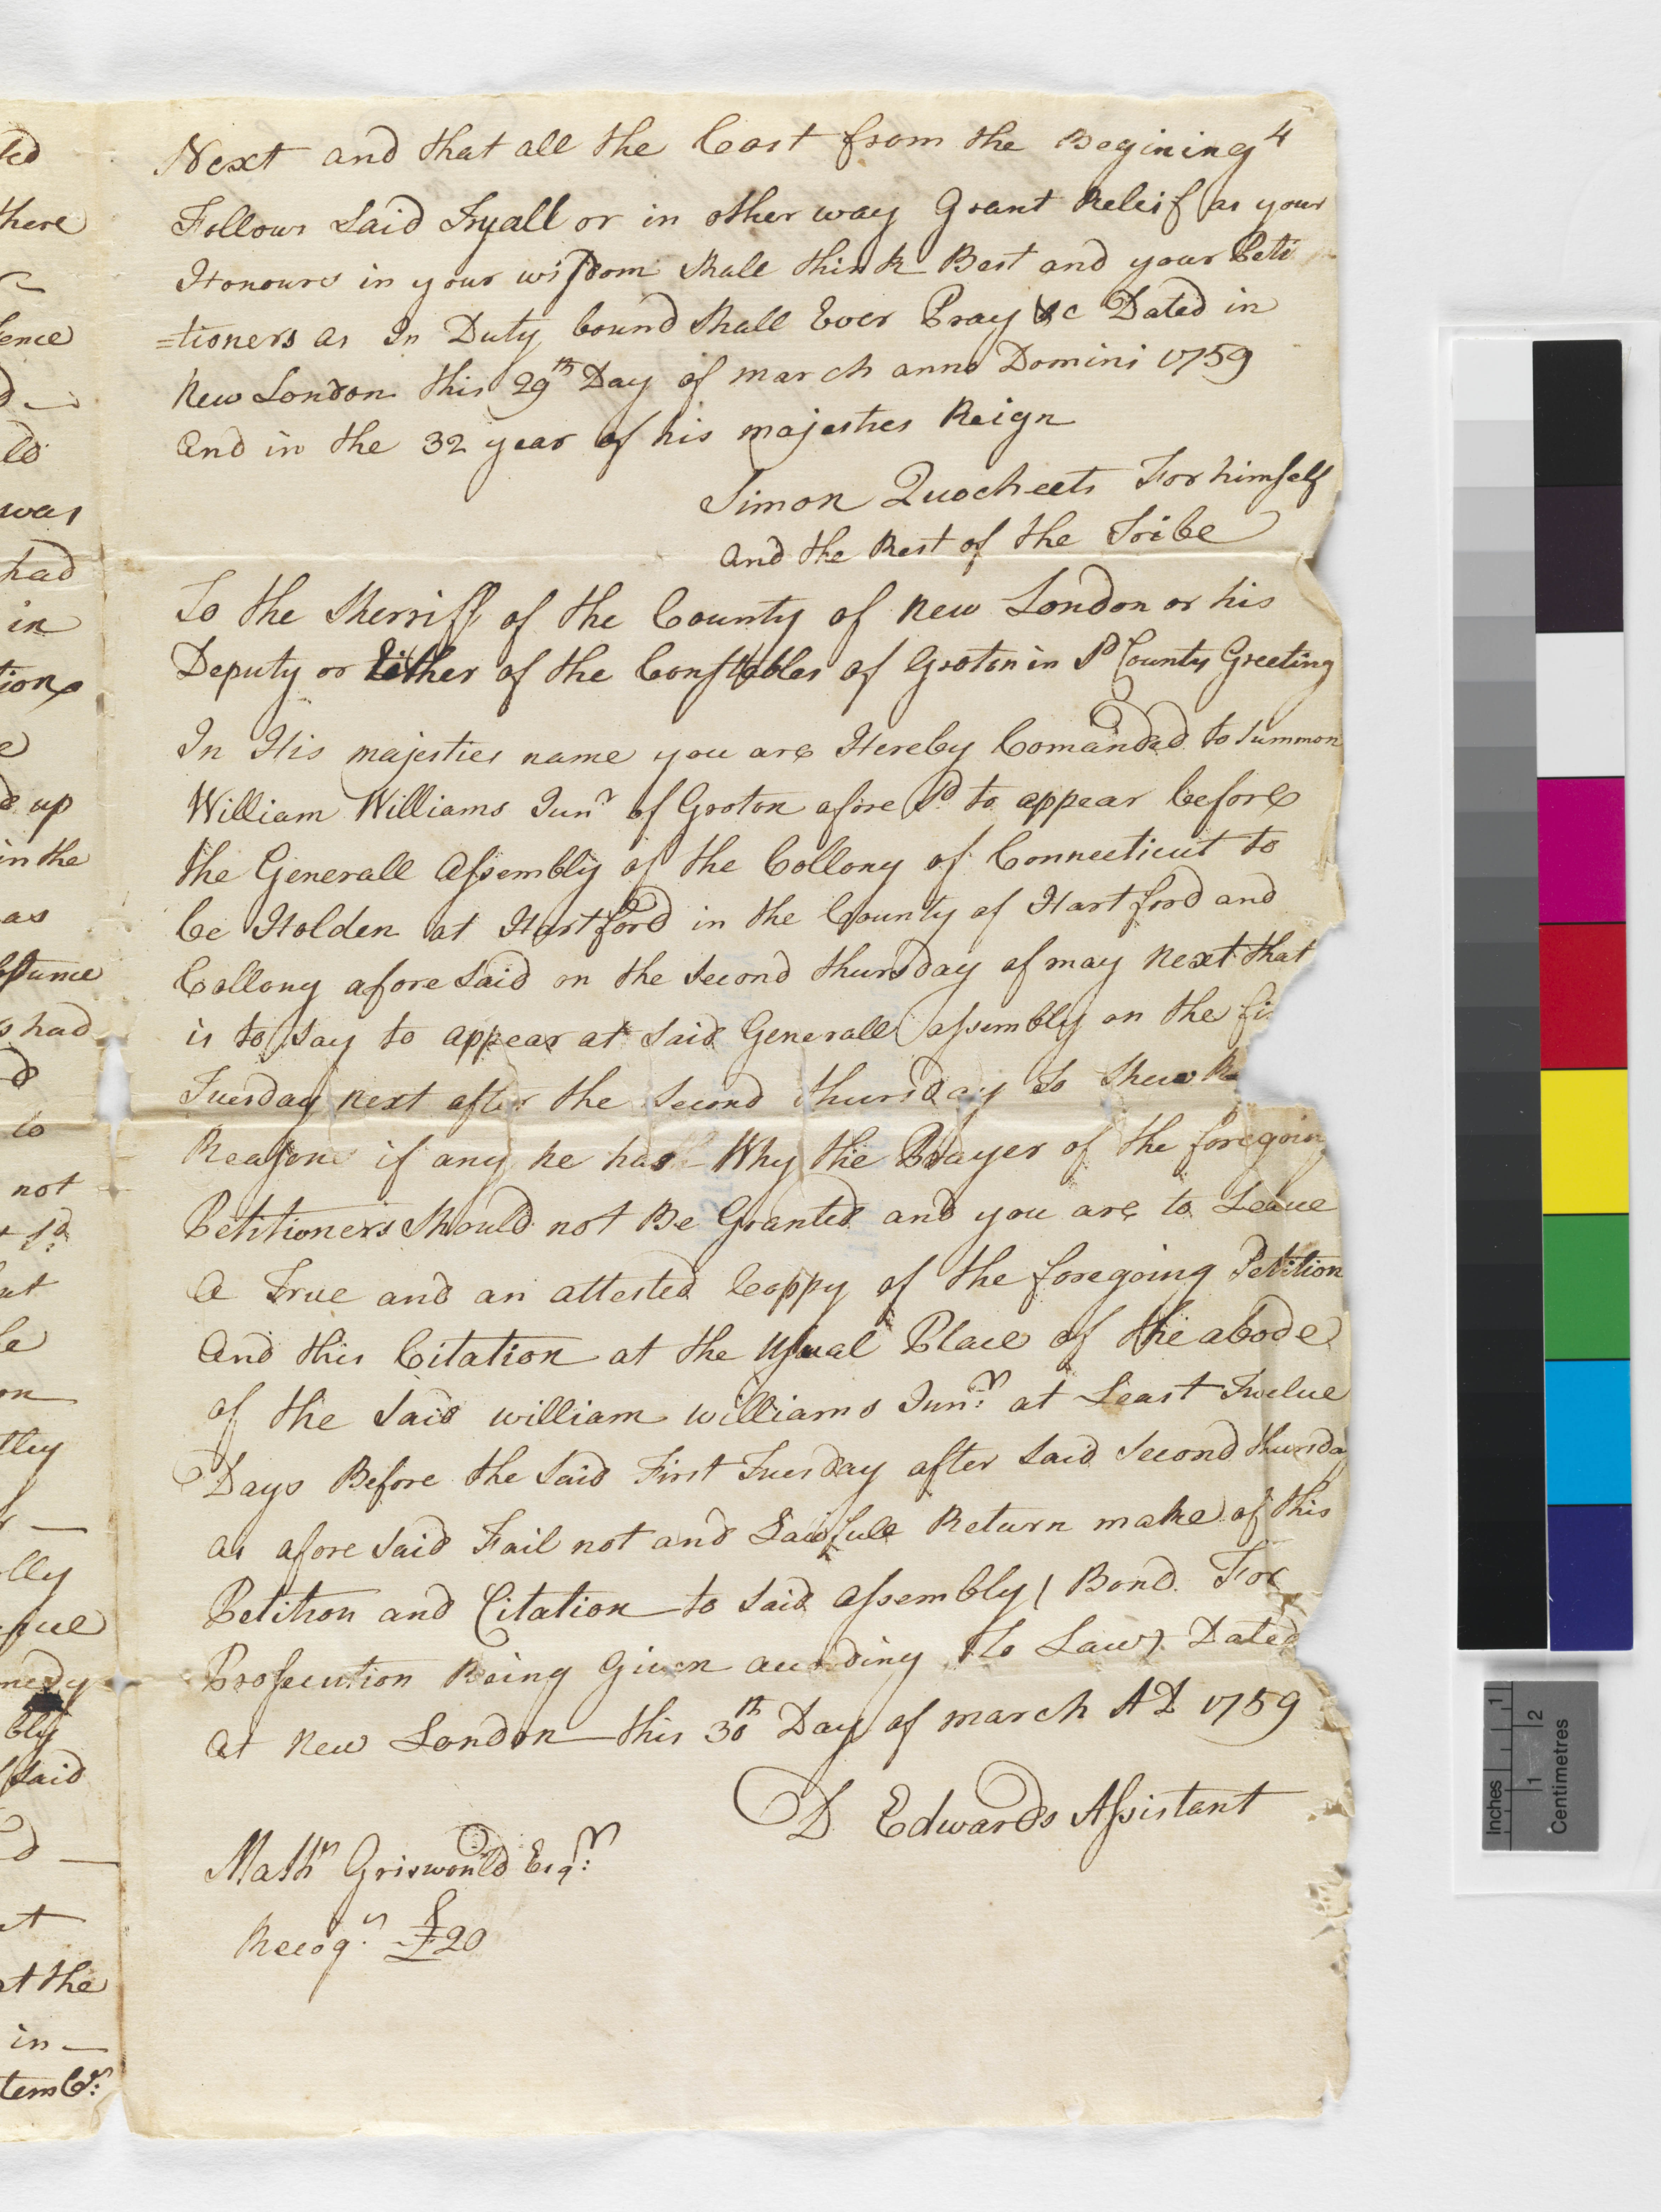 4
Next and that all the Cost from the Begining
Follows Said Tryall or in other way Grant Releif as your
Honours in your wisdom Shall think Best and your Peti
=tioners as In Duty bound Shall Ever Pray &c Dated in
New London this 29th Day of march anno Domini 1759
and in the 32 year of his majesties Reign
Simon Quocheets For himself
and the Rest of the Tribe
To the Sherriff of the County of New London or his
Deputy or Either of the Constables of Groton in Sd County Greeting
In His majesties name you are Hereby Comanded to Summon
William Williams Junr of Groton afore Sd to appear before
the Generall Assembly of the Collony of Connecticut to
be Holden at Hartford in the County of Hartford and
Collony afore Said on the Second thursday of may Next that
is to Say to appear at Said Generall assembly on the fi
Tuesday next after the Second thursday to Shew
Reasons if any he has Why the Prayer of the foregoin
Petitioners Should not Be Granted and you are to Leave
a True and an attested Coppy of the foregoing Petition
and this Citation at the Usual Place of the abode
of the Said william williams Junr at Least Twelve
Days Before the Said First Tuesday after Said Second thursda
as afore Said Fail not and Lawfull Return make of this
Petition and Citation to Said assembly ( Bond For
Prossecution Being Given according to Law) Dated
at New London this 30th Day of march A D 1759
D Edwards Assistant
Mathw Griswould Esqr:
Recogn £20
ted
there
ence
ld
was
had
in
tion
e
d up
in the
as
s had
d
to
not
Sd:
ut
on
tley
lly
nedy
bly
Said
d
at the
in
tembr: